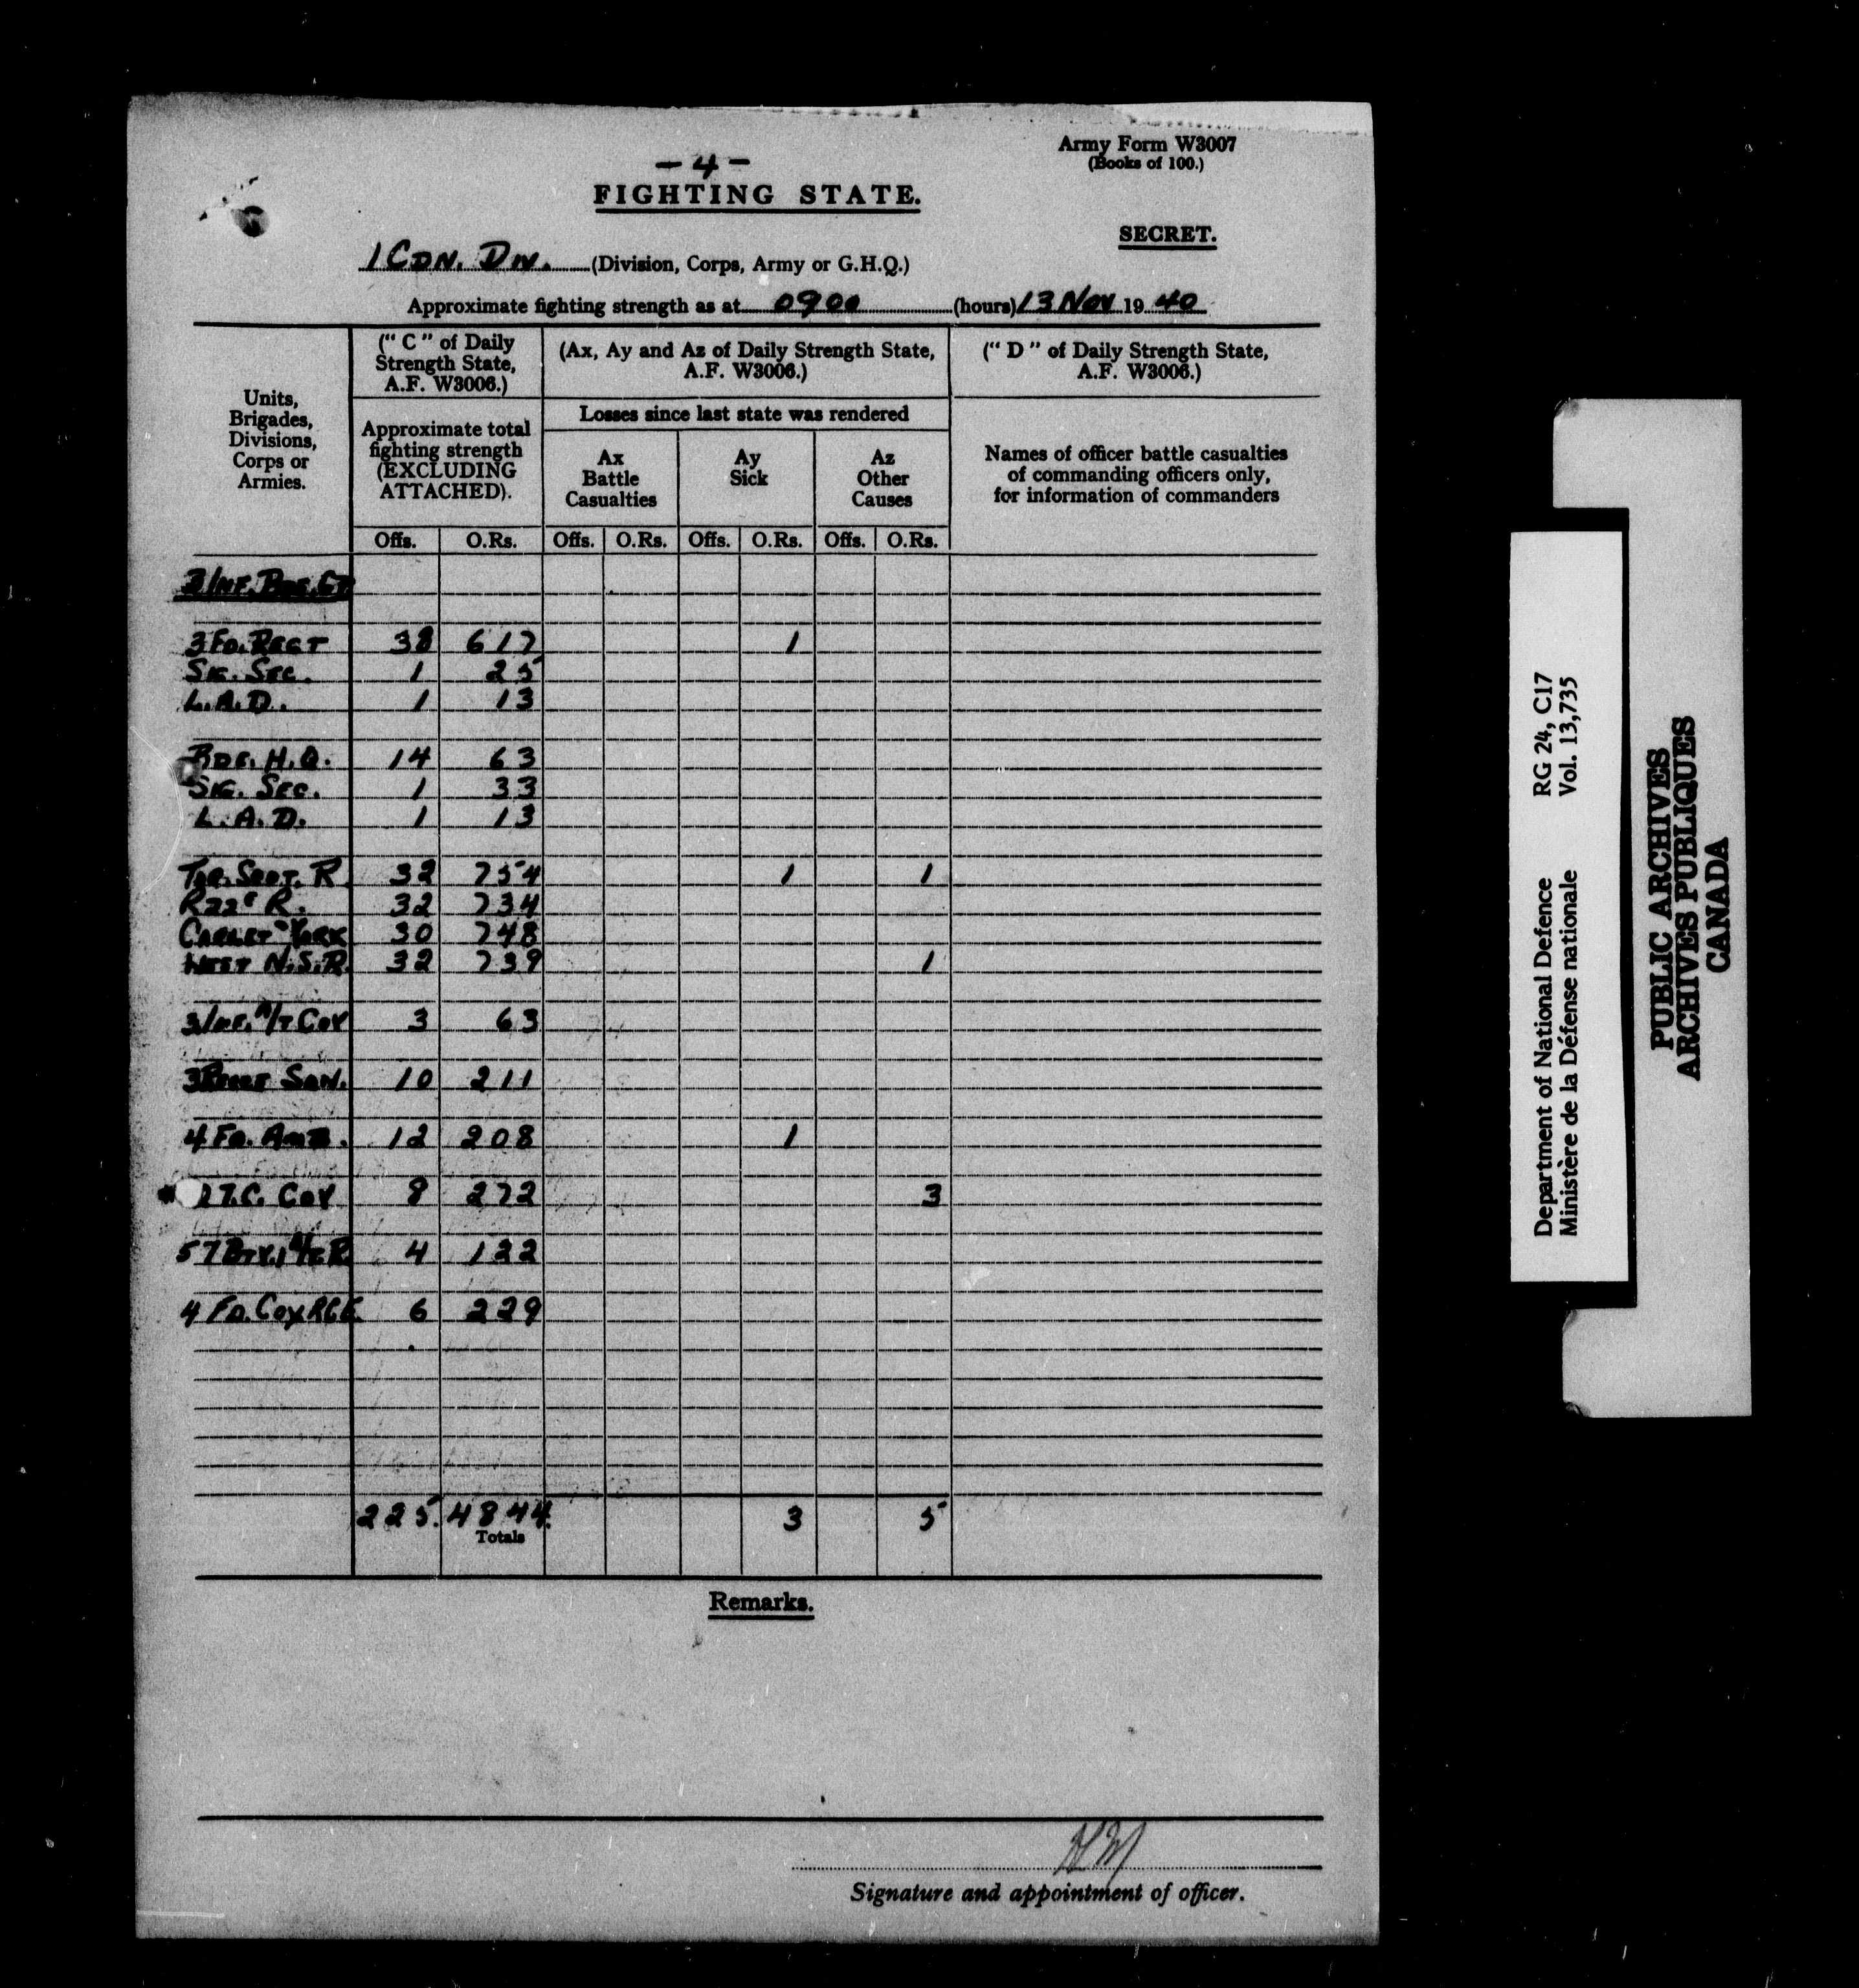 - 4 -
Army Form W3007
(Books of 100.)
FIGHTING STATE.
SECRET.
1 CDN. DIV. (Division, Corps, Army or G.H.Q.)
Approximate fighting strength as at 0900 (hours) 13 Nov 19 40
Units, Brigades, Divisions, Corps or Armies.
("C" of Daily Strength State, A.F. W3006.)
(Ax, Ay and Az of Daily Strength State, A.F. W3006.)
("D" of Daily Strength State, A.F. W3006.)
Approximate total fighting strength (EXCLUDING ATTACHED).
Losses since last state was rendered
Ax Battle Casualties
Ay Sick
Az Other Causes
Names of officer battle casualties of commanding officers only, for information of commanders
Offs. O.Rs. Offs. O.Rs. Offs. O.Rs. Offs. O.Rs.
3 INF. BDE. GP
3 FD. REGT 38 617 1
SIG. SEC. 1 25
L.A.D. 1 13
BDE. H.Q. 14 63
SIG. SEC. 1 33
L.A.D. 1 13
TOR. SCOT. R. 32 754 1 1
R22e R. 32 734
CARLET & YORK 30 748
WEST N.S.R. 32 739 1
3 INF. A/T COY 3 63
3 RECCE SQN. 10 211
4 FD. AMB. 12 208 1
T.C. COY 8 272 3
57 BTY. 1 A/T. R. 4 122
4 FD. COY RCE. 6 229
225. 4844. 3 5
Totals
Remarks.
Signature and appointment of officer.
Department of National Defence RG 24, C17
Ministère de la Défense nationale Vol. 13,735
PUBLIC ARCHIVES
ARCHIVES PUBLIQUES
CANADA